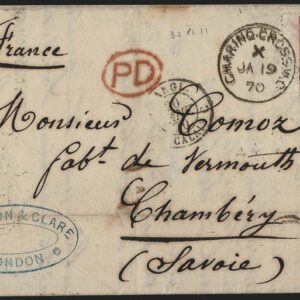 France
32 PL 11
PD
CHARING-CROSS W.C
X
JA 19
70
ANGL.
CALAIS
Monsieur Comoz
fabt. de Vermouth
Chambéry
(Savoie)
N & CLARE
LONDON